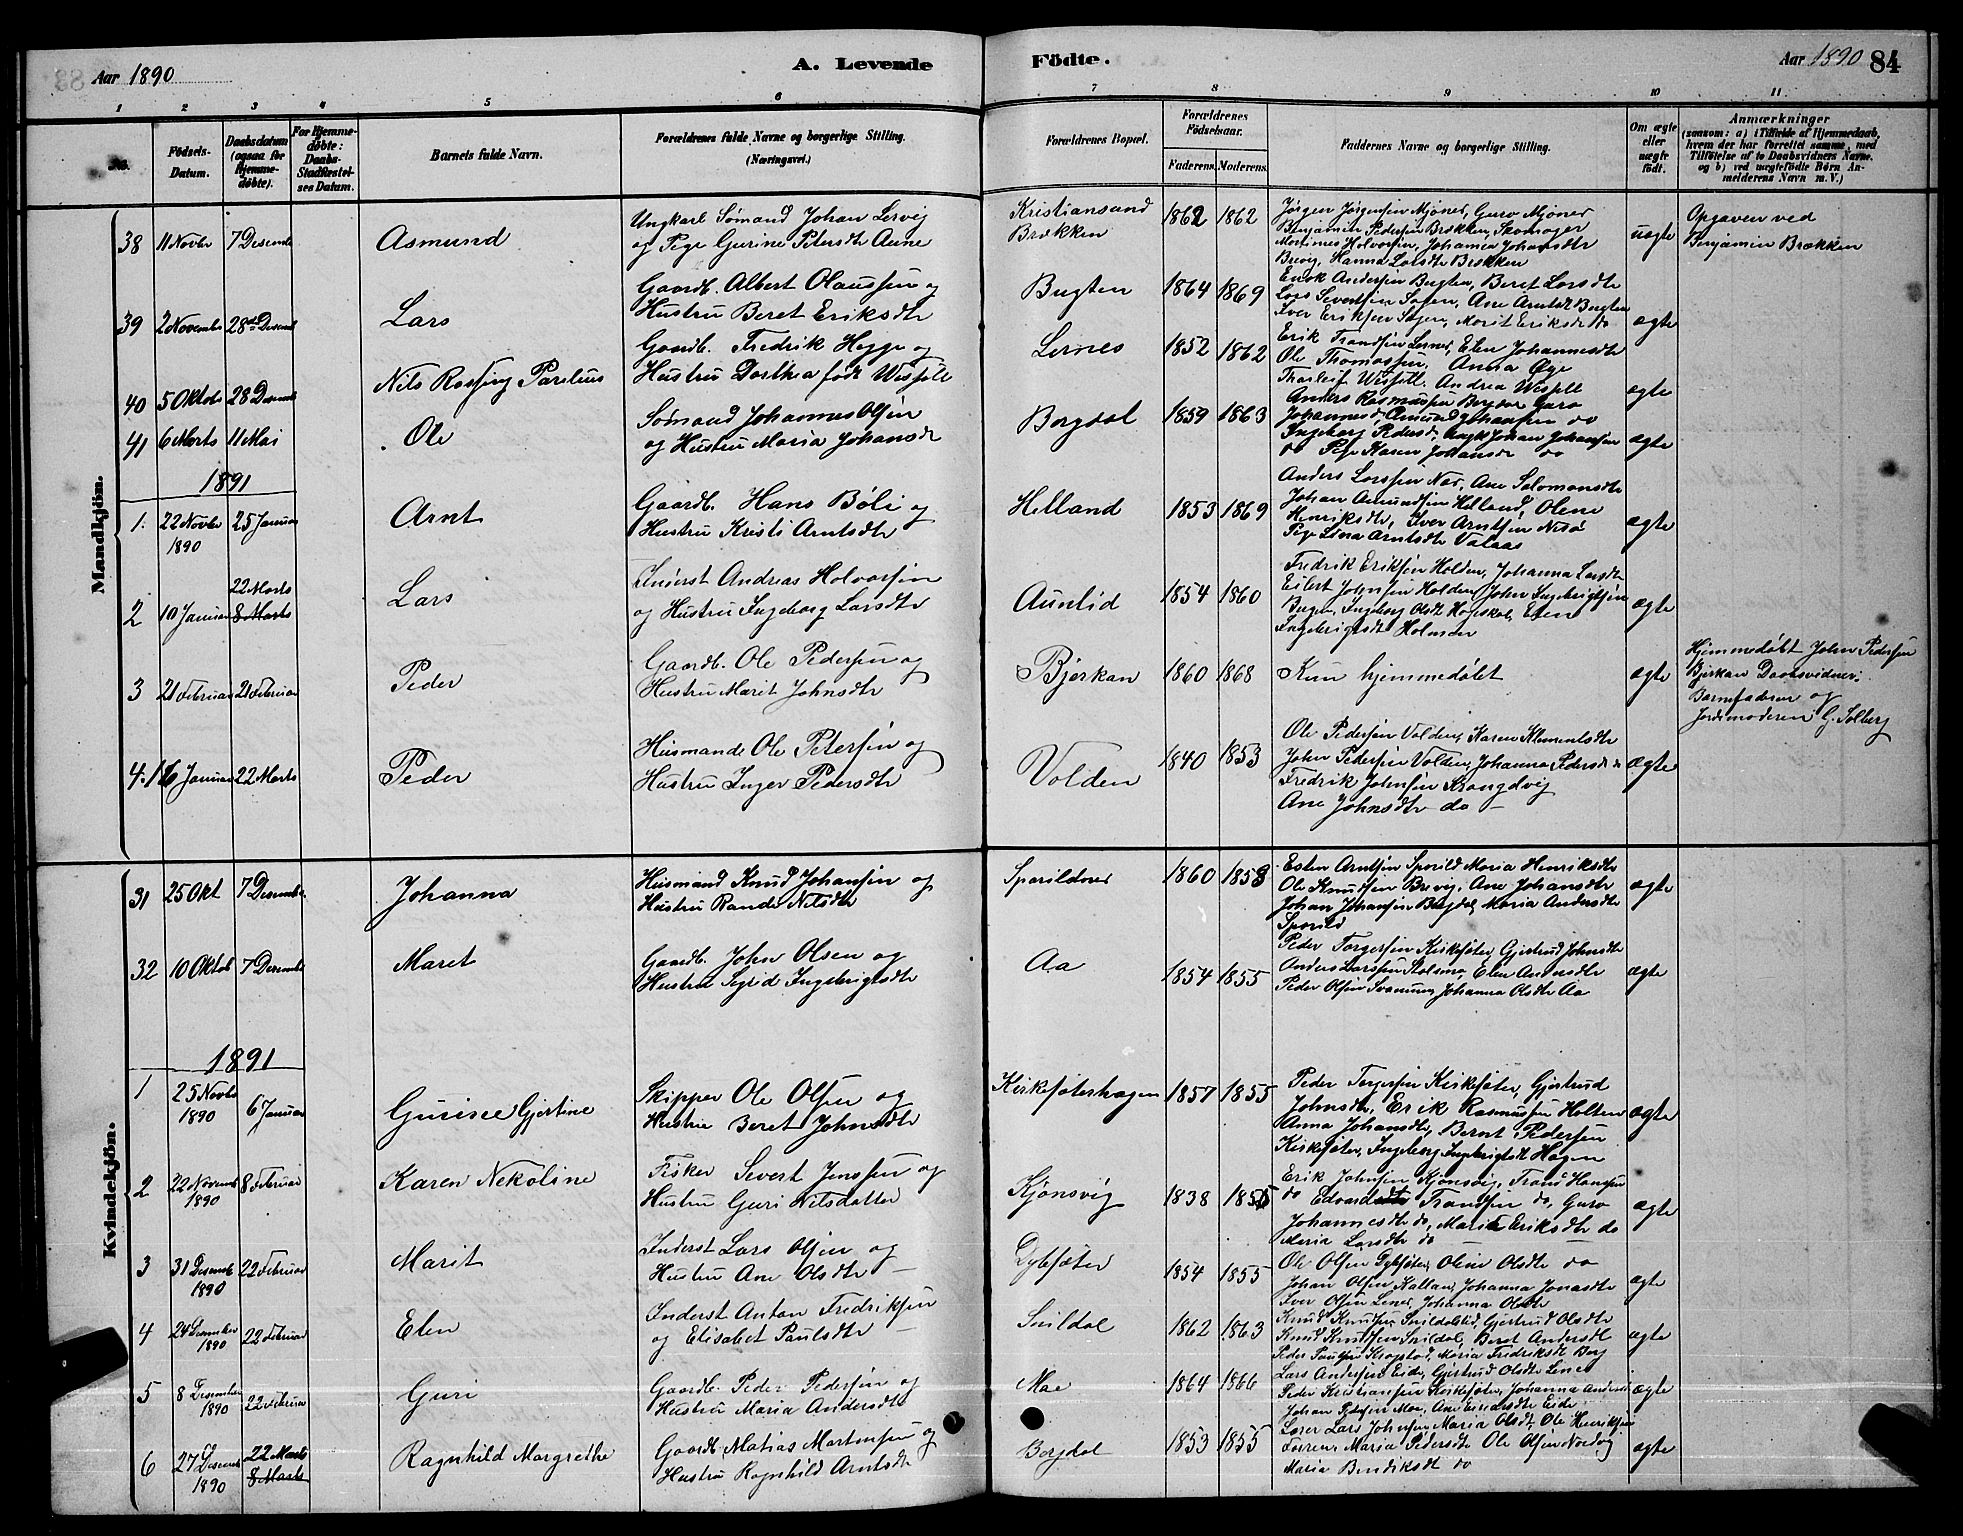 Aar 1890
A. Levende
Födte.
Aar 1890 84
1 2 3 4 5 6 7 8 9 10 11
No.
Födsels-
Datum.
Daabsdatum
(ogsaa for
Hjemme-
døbte).
For Hjemme-
døbte:
Daabs-
Stadfæstel-
ses Datum.
Barnets fulde Navn.
Forældrenes fulde Navne og borgerlige Stilling.
(Næringsvei.)
Forældrenes Bopæl.
Forældrenes
Födselsaar.
Faderens. Moderens.
Faddernes Navne og borgerlige Stilling.
Om ægte
eller
uægte
födt.
Anmærkninger
(saasom: a) i Tilfælde af Hjemmedaab,
hvem der har forrettet samme, med
Tilföielse af to Daabsvidners Navne,
og b) ved uægtefödte Börn An-
melderens Navn m. V.)
Mandkjön.
38 11 Novbr 7 Desembr Asmund
Ungkarl Sømand Johan Lervig
og Pige Gurine Petersdtr Aune
Kristiansund
Brækken
1862 1862
Jørgen Jørgensen Mjønes, Guro Mjønes
Benjamin Pedersen Brækken, Skomager
Mortines Holvorsen, Johanna Johansdtr
Brevig, Hanna Larsdtr Brækken
uægte
Opgaven ved
Benjamin Brækken
39 2 Novembr 28de Desemb Lars
Gaardb. Albert Olaussen og
Hustru Beret Eriksdtr
Bugten 1864 1869
Enok Andersen Bugten, Beret Larsdtr
Lars Severtsen, Ane Arntsdt Bugten
Iver Eriksen, Marit Eriksdtr do
ægte
40 5 Oktobr 28 Desemb Nils Rossing Parelius
Gaardb. Fredrik Hegge og
Hustru Dorthea født Wessel
Lernes 1852 1862
Erik Trondsen Lernes, Elen Johannesdtr
Ole Thomassen, Anna Øye
Tharleif Wessel. Andrea Wessel
ægte
41 6 Marts 11 Mai Ole
Sømand Johannes Olsen
og Hustru Maria Johansdtr
Borgdal 1859 1863
Anders Rasmussen Borgdal Guro
Johannesdt Johansen do
Ingeborg Pedersdt, Johan Johansen
do Pige Karen Johansdt do
ægte
1891
1. 22 Novbr 1890 25 Januar Arnt
Gaardb. Hans Bøli og
Hustru Kristi Arntsdtr
Helland 1853 1869
Anders Larssen Næs, Ane Salomonsdtr
Johan Amundsen Helland, Olene
Henriksdtr, Iver Arntsen
Pige Lina Arntsdtr Valaas
ægte
2 10 Januar 22 Marts 8 Marts Lars
Inderst Andreas Holvorsen
og Hustru Ingeborg Larsdtr
Aunlid 1854 1860
Fredrik Eriksen Holden, Johanna Larsdtr
Eilert Johnsen Holden, John Ingebrigtsen
Ingeborg Olsdt, Elen
Ingebrigtsdt Holmen
ægte
3 21 Februar 21 Februar Peder
Gaardb. Ole Pedersen og
Hustru Marit Johnsdtr
Bjerkan 1860 1868
Kun hjemmedøbt
ægte
Hjemmedøbt John Pedersen
Bjerkan Daabsvidner:
Barnefaderen og
Jordmoderen G. Solberg
4. 16 Januar 22 Marts Peder
Husmand Ole Petersen og
Hustru Inger Pedersdtr
Volden 1840 1853
Ole Pedersen Volden, Karen Klementsdtr
John Petersen Volden, Johanna Pedersdtr
Fredrik Johnsen
Ane Johnsdtr do —
ægte
Kvindekjön.
31 25 Okt 7 Desembr Johanna
Husmand Knud Johansen og
Hustru Randi Nilsdtr
Sporildnes 1860 1858
Esten Arntsen Sporild Maria Henriksdtr
Ole Knudsen Brevig, Ane Johansdtr
Johan Johansen Borgdal, Maria Andersdtr
Sporild
ægte
32 10 Oktob 7 Desembr Maret
Gaardb. John Olsen og
Hustru Sigrid Ingebrigtsdtr
Aa 1854 1855
Peder Torgersen Kirkesæter, Gjertrud Johnsdtr
Anders Larssen, Elen Andersdtr
Peder Olsen, Johanna Olsdtr Aa
ægte
1891
1 25 Novbr 1890 6 Januar Gurine Gjertine
Skipper Ole Olsen og
Hustru Beret Johnsdtr
Kirkesæterhagen 1857 1855
Peder Torgersen Kirkesæter, Gjertrud
Johnsdtr, Erik Rasmussen Holten
Anna Johansdtr, Bernt Pedersen
Kirkesæter, Ingeborg Ingebrigtsdt Hagen
ægte
2 22 Novemb 1890 8 Februar Karen Nekoline
Fisker Severt Jenssen og
Hustru Guri Nilsdatter
Kjønsvig 1838
Erik Johnsen Kjønsvig, Trond Hansen
do Edvard Trondsen do, Guro
Johannesdtr do, Marit Eriksdtr do
Maria Larsdtr do
ægte
3 31 Desemb 1890 22 Februar Marit
Inderst Lars Olsen og
Hustru Ane Olsdtr —
Dybsæter 1854 1855
Ole Olsen Dybsæter, Oline Olsdtr do
Johan Olsen, Johanna Jonasdtr
Iver Olsen, Johanna Olsdtr
ægte
4 24 Desember 1890 22 Februar Elen
Inderst Anton Fredriksen
og Elisabet Paulsdtr —
Snildal 1862 1863
Knud Knudsen, Gjertrud Olsdtr
Knud Knudsen Snildal, Beret Andersdt
Peder Paulsen, Maria Fredriksdt Berg
ægte
5 8 Desember 1890 22 Februar Guri
Gaardb. Peder Pedersen og
Hustru Maria Andersdtr
Moe 1864 1866
Lars Andersen Eide, Gjertrud Olsdtr
Peder Kristiansen Kirkesæter, Johanna Andersdt
Johan Petersen Moe, Ane Andersdtr Eide
ægte
6 27 Desemb 1890 22 Marts 8 Marts Ragnhild Margrethe
Gaardb. Matias Martinsen og
Hustru Ragnhild Arntsdtr
Borgdal 1853 1855
Lærer Lars Johansen, Maria Olsdt, Ole Henriksen
Maria Pedersdtr Ole Olsen
Maria Bendiksdt do
ægte